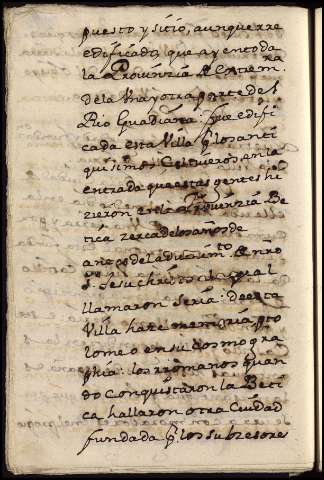 puesto y sitio, aunque rre
edificado, que ay en toda
la Prouinzia de Estrem.ra
de la mayor parte del
Rio Guadiana: fue edifi
cada esta Villa p.r los anti
quisimos Celtueros, en la
entrada que estas gentes hi
zieron en la Prouinzia Be
tica zerca de los años de
antes del aduenim.to de nro
s.r Jesuchristo el qual
llamaron Seria: de esta
Villa haze memoria pto
lomeo en su cosmogra
phia: los rromanos quan
do conquistaron la Beti
ca hallaron otra Ciudad
fundada p.r los subzesore